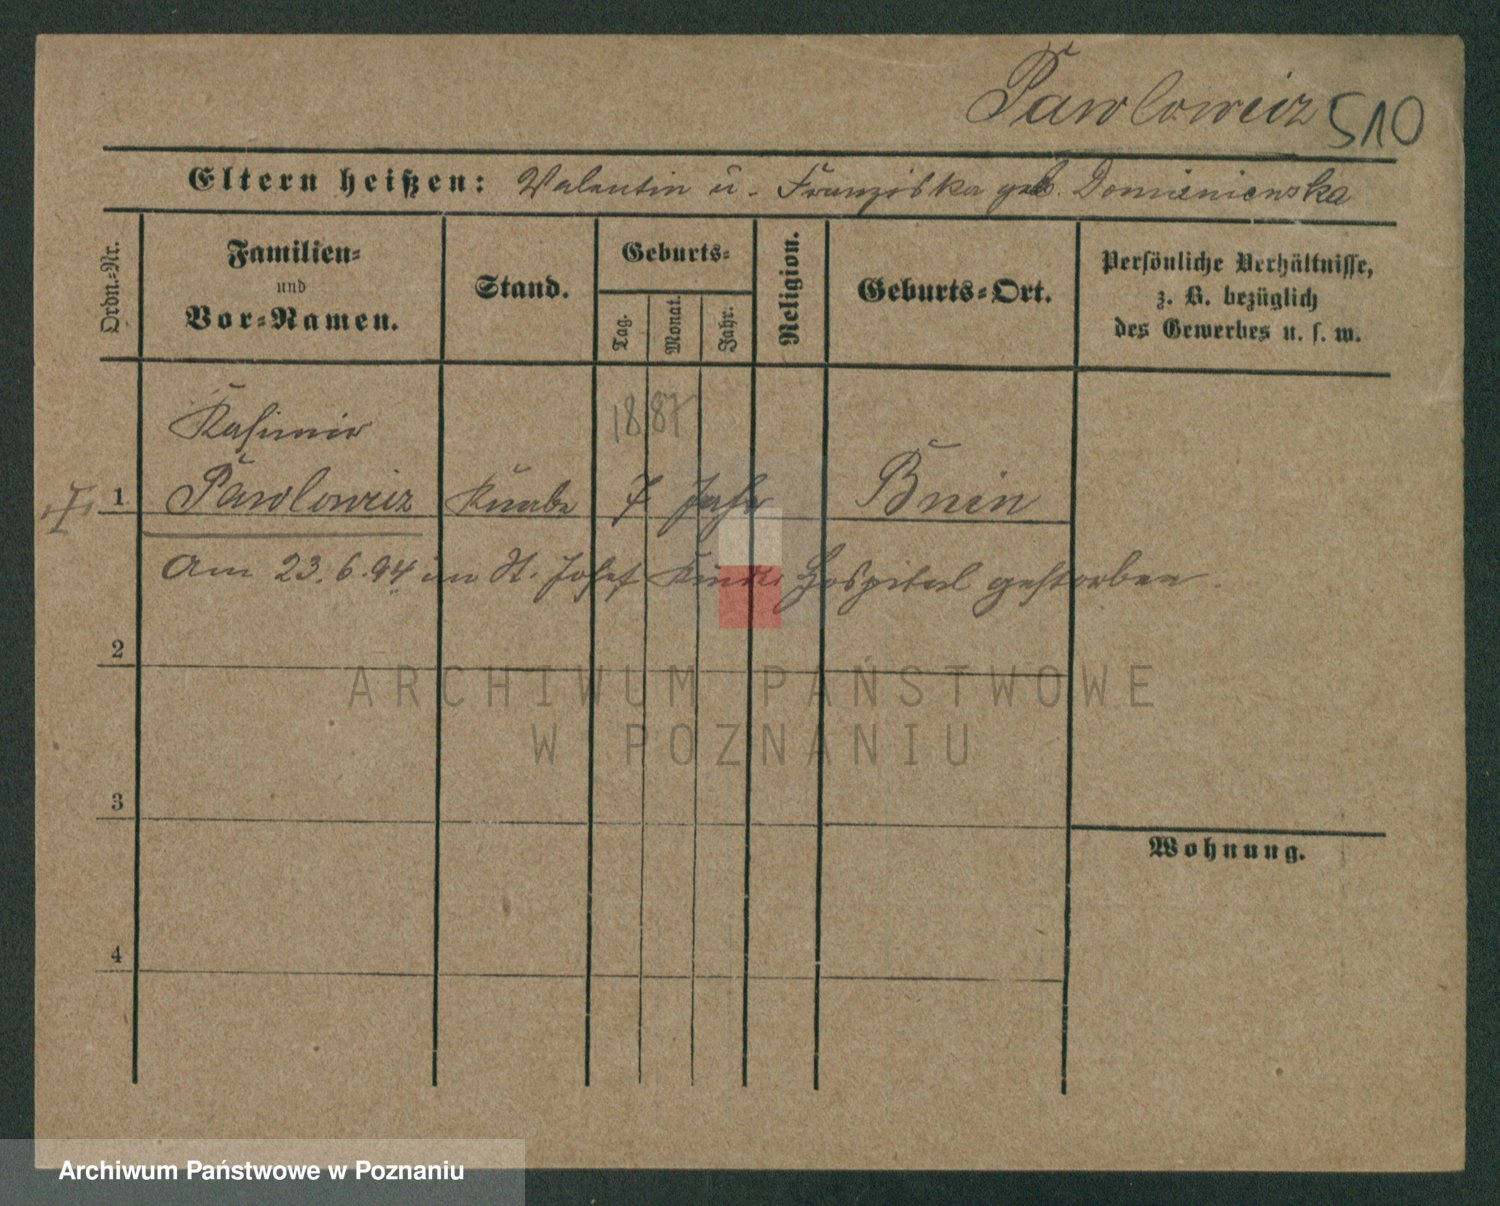 Pawlowicz 510
Eltern heißen: Valentin u. Franziska geb. Domieniewska
Ordn.-Nr.
Familien-
und
Vor-Namen.
Stand.
Geburts-
Tag.
Monat.
Jahr.
Religion.
Geburts-Ort.
Persönliche Verhältnisse,
z. B. bezüglich
des Gewerbes u. s. w.
Kasimir
1887
1 Pawlowicz Knabe 7 Jahr Bnin
Am 23.6.94 im St. Josef Hospital gestorben.
2
ARCHIWUM PAŃSTWOWE
W POZNANIU
3
Wohnung.
4
Archiwum Państwowe w Poznaniu